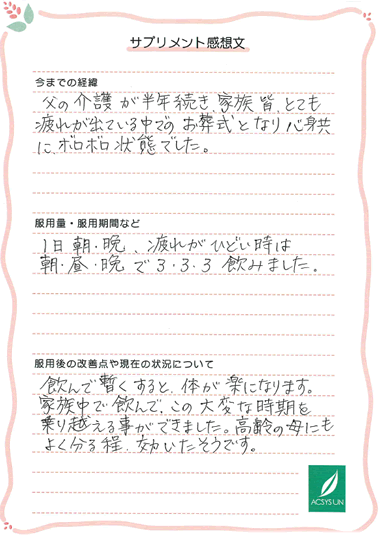 サプリメント感想文
今までの経緯
父の介護が半年続き、家族皆、とても
疲れが出ている中での お葬式となり 心身共
に、ボロボロ状態でした。
服用量・服用期間など
1日 朝・晩、疲れがひどい時は
朝・昼・晩 で 3・3・3 飲みました。
服用後の改善点や現在の状況について
飲んで暫くすると、体が楽になります。
家族中で飲んで、この大変な時期を
乗り越える事ができました。高齢の母にも
よく分る程、効いたそうです。
ACSYSUN